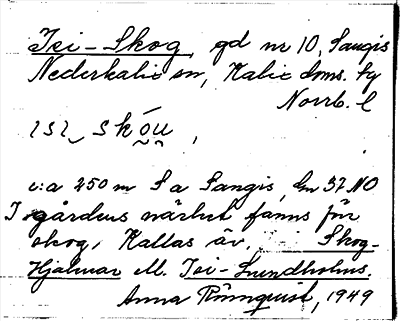 Isi-Skog, gd nr 10, Sangis
Nederkalix sn, Kalix doms. hy
Norrb. l
ɩsɩ‿skóu̯ ,
c:a 250 m S a Sangis, 37 NO
I gårdens närhet fanns förr
skog, Kallas äv. Skog-
Hjalmar el. Isi-Sundholms.
Anna Rönnquist, 1949